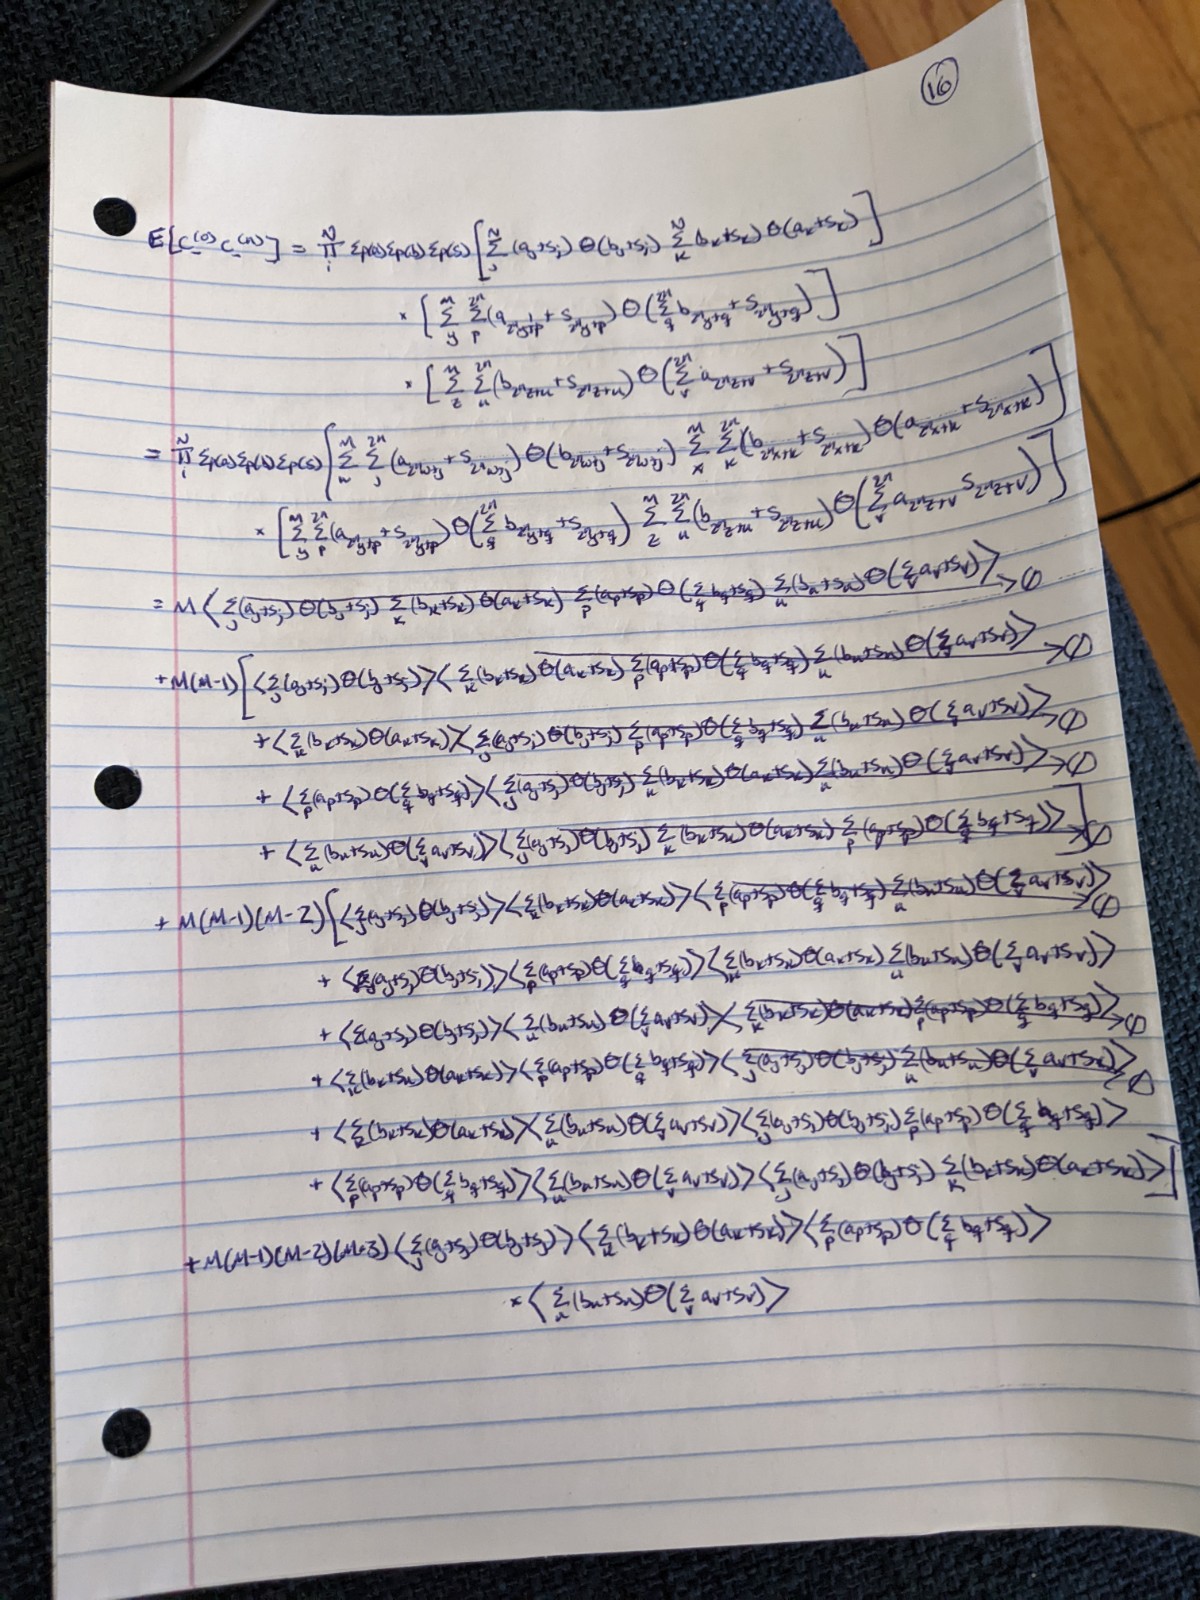 16
E[C^(0) C^(n)] = ∏_i^N Σp(a) Σp(b) Σp(s) [ Σ_j^N (a_j+s_j) Θ(b_j+s_j) Σ_k^N (b_k+s_k) Θ(a_k+s_k) ]
× [ Σ_y^M Σ_p^{2^n} (a_{2^n y+p} + s_{2^n y+p}) Θ( Σ_q^{2^n} b_{2^n y+q} + s_{2^n y+q} ) ]
× [ Σ_z^M Σ_u^{2^n} (b_{2^n z+u} + s_{2^n z+u}) Θ( Σ_v^{2^n} a_{2^n z+v} + s_{2^n z+v} ) ]
= ∏_i^N Σp(a) Σp(b) Σp(s) [ Σ_w^M Σ_j^{2^n} (a_{2^n w+j} + s_{2^n w+j}) Θ(b_{2^n w+j} + s_{2^n w+j}) Σ_x^M Σ_k^{2^n} (b_{2^n x+k} + s_{2^n x+k}) Θ(a_{2^n x+k} + s_{2^n x+k}) ]
× [ Σ_y^M Σ_p^{2^n} (a_{2^n y+p} + s_{2^n y+p}) Θ( Σ_q^{2^n} b_{2^n y+q} + s_{2^n y+q} ) Σ_z^M Σ_u^{2^n} (b_{2^n z+u} + s_{2^n z+u}) Θ( Σ_v^{2^n} a_{2^n z+v} s_{2^n z+v} ) ]
= M ⟨ Σ_j (a_j+s_j) Θ(b_j+s_j) Σ_k (b_k+s_k) Θ(a_k+s_k) Σ_p (a_p+s_p) Θ(Σ_q b_q+s_q) Σ_u (b_u+s_u) Θ(Σ_v a_v+s_v) ⟩ → 0
+ M(M-1) [ ⟨Σ_j (a_j+s_j) Θ(b_j+s_j)⟩ ⟨Σ_k (b_k+s_k) Θ(a_k+s_k) Σ_p (a_p+s_p) Θ(Σ_q b_q+s_q) Σ_u (b_u+s_u) Θ(Σ_v a_v+s_v)⟩ → 0
+ ⟨Σ_k (b_k+s_k) Θ(a_k+s_k)⟩ ⟨Σ_j (a_j+s_j) Θ(b_j+s_j) Σ_p (a_p+s_p) Θ(Σ_q b_q+s_q) Σ_u (b_u+s_u) Θ(Σ_v a_v+s_v)⟩ → 0
+ ⟨Σ_p (a_p+s_p) Θ(Σ_q b_q+s_q)⟩ ⟨Σ_j (a_j+s_j) Θ(b_j+s_j) Σ_k (b_k+s_k) Θ(a_k+s_k) Σ_u (b_u+s_u) Θ(Σ_v a_v+s_v)⟩ → 0
+ ⟨Σ_u (b_u+s_u) Θ(Σ_v a_v+s_v)⟩ ⟨Σ_j (a_j+s_j) Θ(b_j+s_j) Σ_k (b_k+s_k) Θ(a_k+s_k) Σ_p (a_p+s_p) Θ(Σ_q b_q+s_q)⟩ ] → 0
+ M(M-1)(M-2) [ ⟨Σ_j (a_j+s_j) Θ(b_j+s_j)⟩ ⟨Σ_k (b_k+s_k) Θ(a_k+s_k)⟩ ⟨Σ_p (a_p+s_p) Θ(Σ_q b_q+s_q) Σ_u (b_u+s_u) Θ(Σ_v a_v+s_v)⟩ → 0
+ ⟨Σ(a_j+s_j) Θ(b_j+s_j)⟩ ⟨Σ_p (a_p+s_p) Θ(Σ_q b_q+s_q)⟩ ⟨Σ_k (b_k+s_k) Θ(a_k+s_k) Σ_u (b_u+s_u) Θ(Σ_v a_v+s_v)⟩
+ ⟨Σ(a_j+s_j) Θ(b_j+s_j)⟩ ⟨Σ_u (b_u+s_u) Θ(Σ_v a_v+s_v)⟩ ⟨Σ_k (b_k+s_k) Θ(a_k+s_k) Σ_p (a_p+s_p) Θ(Σ_q b_q+s_q)⟩ → 0
+ ⟨Σ_k (b_k+s_k) Θ(a_k+s_k)⟩ ⟨Σ_p (a_p+s_p) Θ(Σ_q b_q+s_q)⟩ ⟨Σ_j (a_j+s_j) Θ(b_j+s_j) Σ_u (b_u+s_u) Θ(Σ_v a_v+s_v)⟩ → 0
+ ⟨Σ_k (b_k+s_k) Θ(a_k+s_k)⟩ ⟨Σ_u (b_u+s_u) Θ(Σ_v a_v+s_v)⟩ ⟨Σ_j (a_j+s_j) Θ(b_j+s_j) Σ_p (a_p+s_p) Θ(Σ_q b_q+s_q)⟩
+ ⟨Σ_p (a_p+s_p) Θ(Σ_q b_q+s_q)⟩ ⟨Σ_u (b_u+s_u) Θ(Σ_v a_v+s_v)⟩ ⟨Σ_j (a_j+s_j) Θ(b_j+s_j) Σ_k (b_k+s_k) Θ(a_k+s_k)⟩ ]
+ M(M-1)(M-2)(M-3) ⟨Σ_j (a_j+s_j) Θ(b_j+s_j)⟩ ⟨Σ_k (b_k+s_k) Θ(a_k+s_k)⟩ ⟨Σ_p (a_p+s_p) Θ(Σ_q b_q+s_q)⟩
× ⟨Σ_u (b_u+s_u) Θ(Σ_v a_v+s_v)⟩